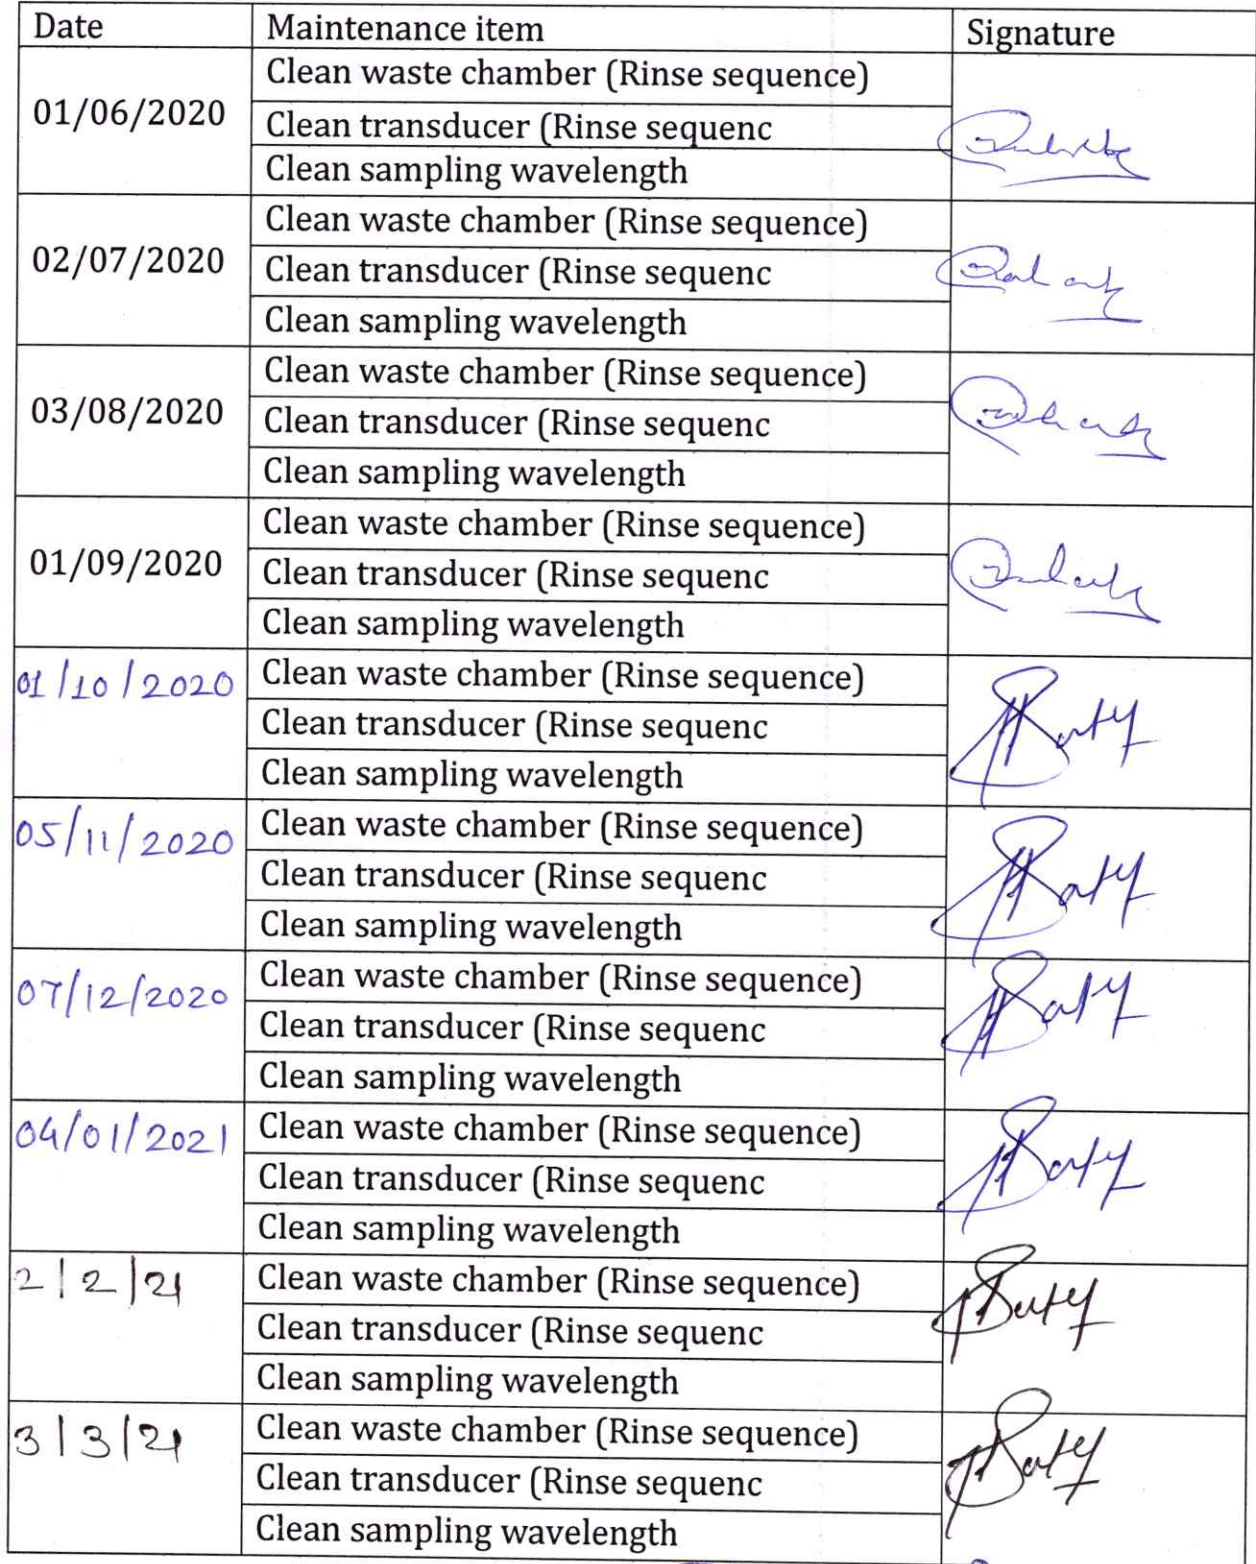 Date Maintenance item Signature
Clean waste chamber (Rinse sequence)
01/06/2020 Clean transducer (Rinse sequenc
Clean sampling wavelength
Clean waste chamber (Rinse sequence)
02/07/2020 Clean transducer (Rinse sequenc
Clean sampling wavelength
Clean waste chamber (Rinse sequence)
03/08/2020 Clean transducer (Rinse sequenc
Clean sampling wavelength
Clean waste chamber (Rinse sequence)
01/09/2020 Clean transducer (Rinse sequenc
Clean sampling wavelength
01/10/2020 Clean waste chamber (Rinse sequence)
Clean transducer (Rinse sequenc
Clean sampling wavelength
05/11/2020 Clean waste chamber (Rinse sequence)
Clean transducer (Rinse sequenc
Clean sampling wavelength
07/12/2020 Clean waste chamber (Rinse sequence)
Clean transducer (Rinse sequenc
Clean sampling wavelength
04/01/2021 Clean waste chamber (Rinse sequence)
Clean transducer (Rinse sequenc
Clean sampling wavelength
2/2/21 Clean waste chamber (Rinse sequence)
Clean transducer (Rinse sequenc
Clean sampling wavelength
3/3/21 Clean waste chamber (Rinse sequence)
Clean transducer (Rinse sequenc
Clean sampling wavelength